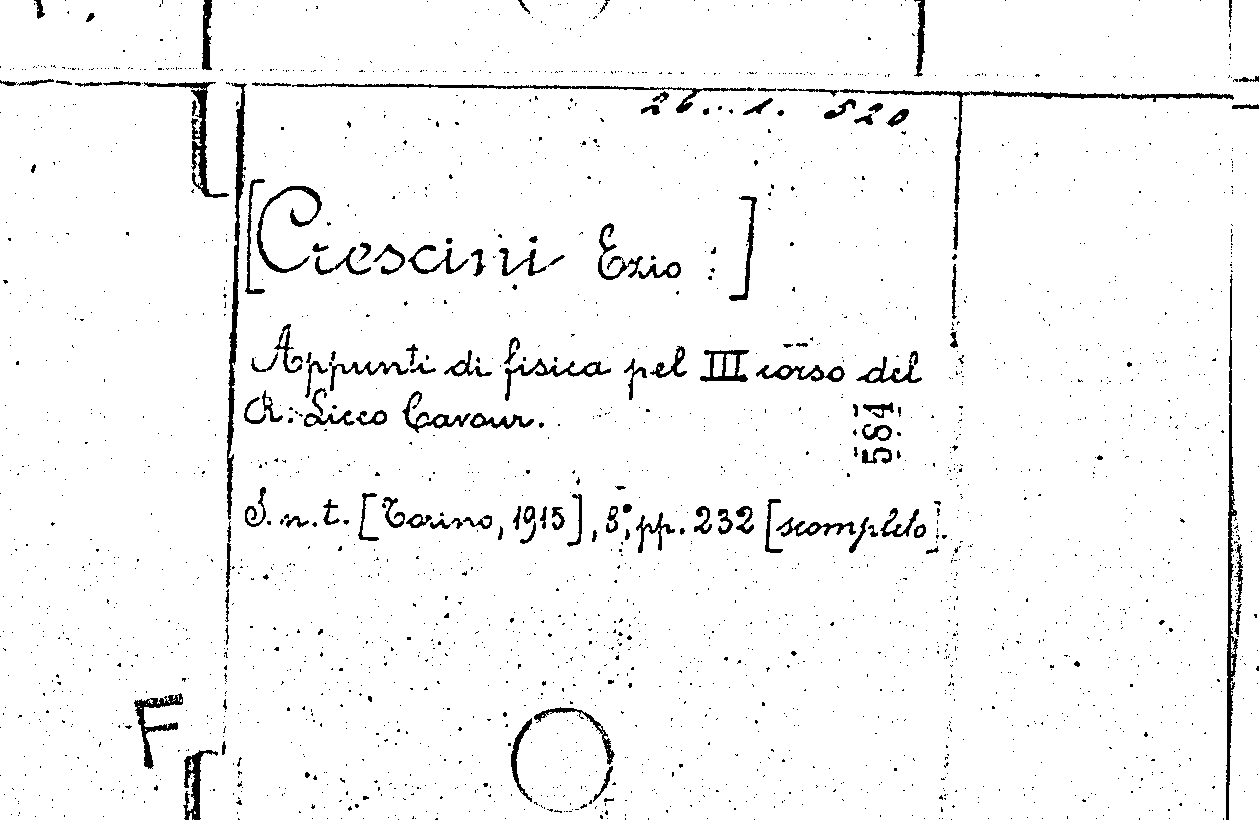 26...1. 520
[Crescini Ezio :]
Appunti di fisica pel III corso del
R. Liceo Cavour.
564
S. n. t. [Torino, 1915], 8°, pp. 232 [scompleto].
F